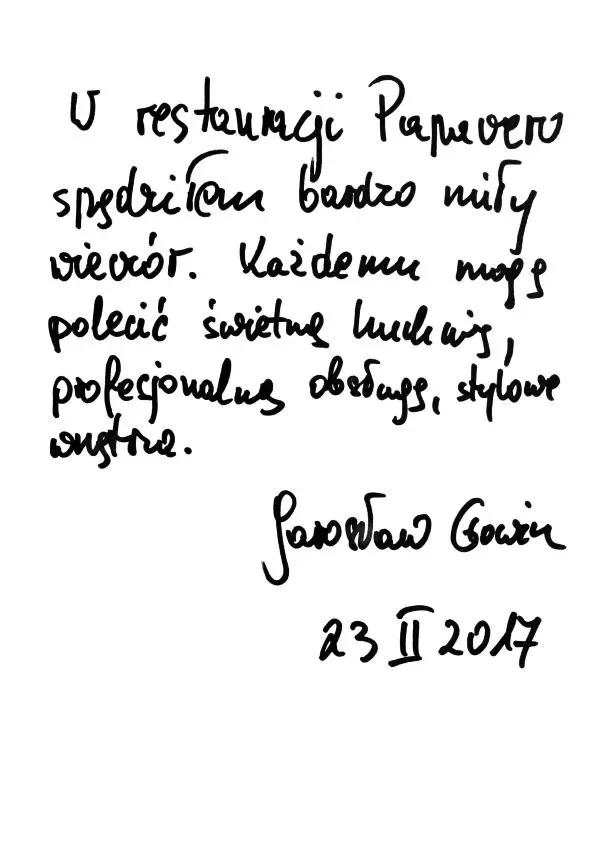 W restauracji Papavero
spędziłem bardzo miły
wieczór. Każdemu mogę
polecić świetną kuchnię,
profesjonalną obsługę, stylowe
wnętrza.
Jarosław Gowin
23 II 2017